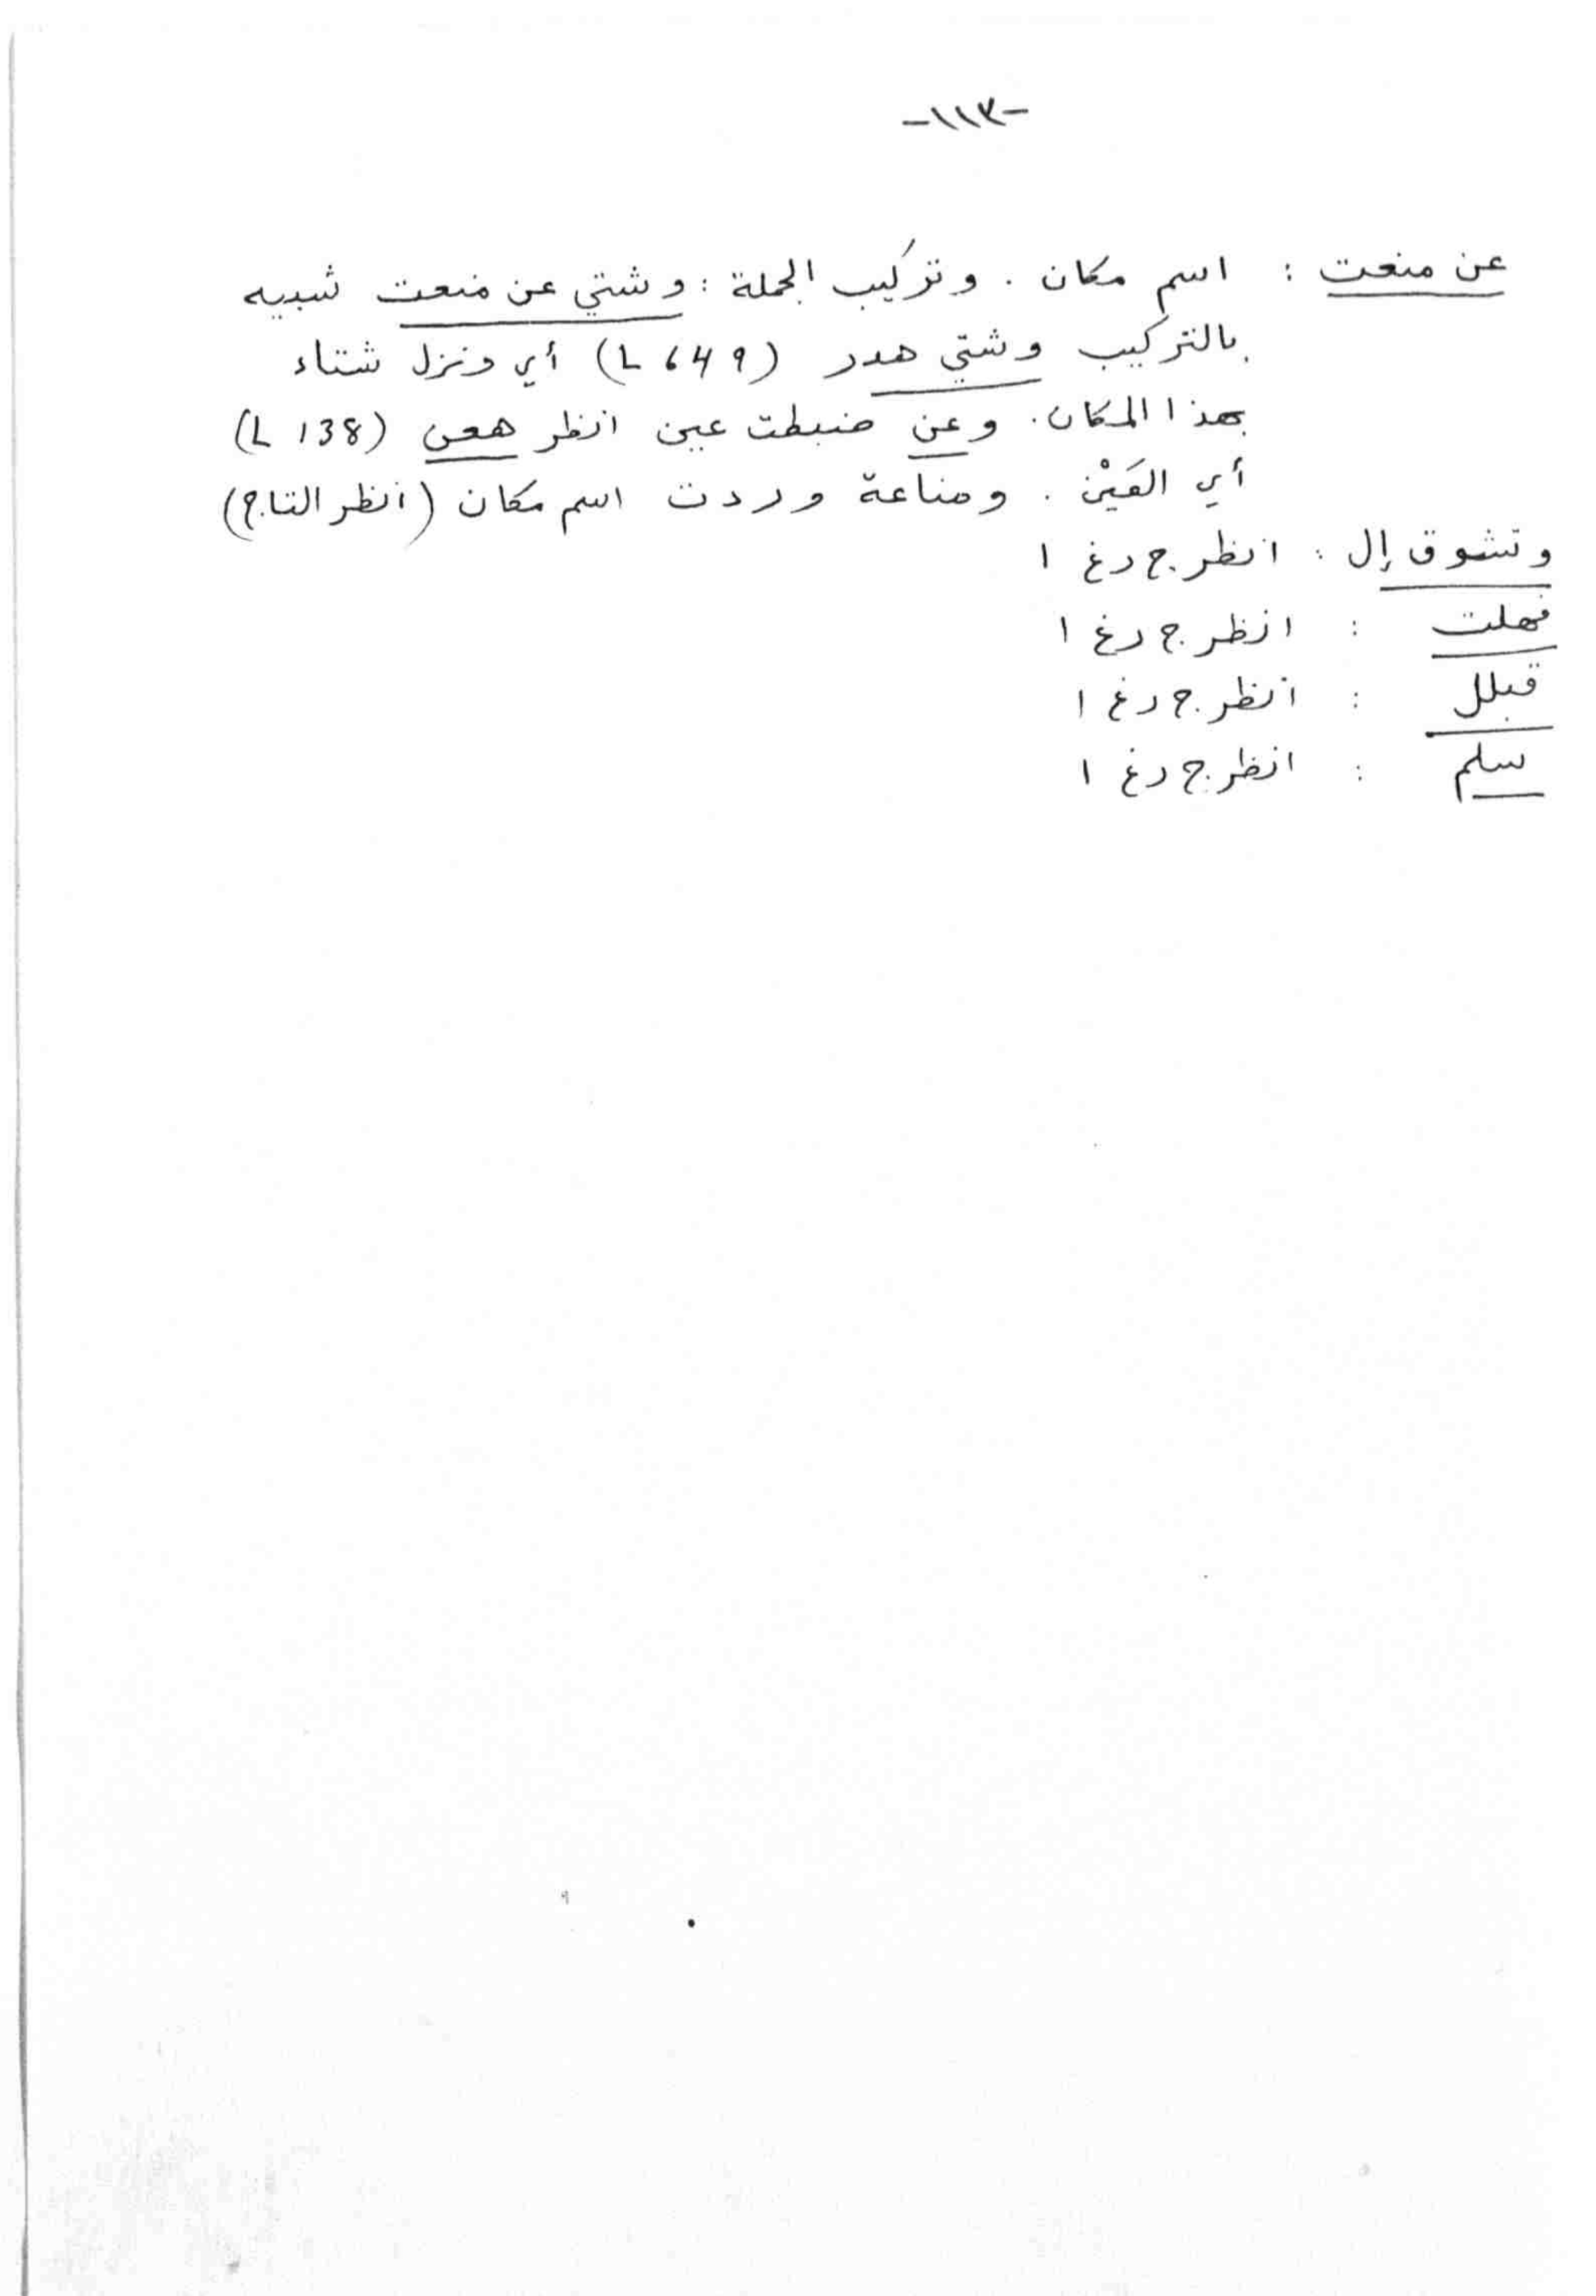 -١١٣-
عن منعت : اسم مكان . وتركيب الجملة : وشتي عن منعت شبيه
بالتركيب وشتي هدر (L 649) أي ونزل شتاء
بهذا المكان. وعن ضبطت عين انظر هعن (L 138)
أي العَيْن . ومناعة وردت اسم مكان (انظر التاج)
وتشوق إل : انظر ج رغ ١
فهلت : انظر ج رغ ١
قبلل : انظر ج رغ ١
سلم : انظر ج رغ ١